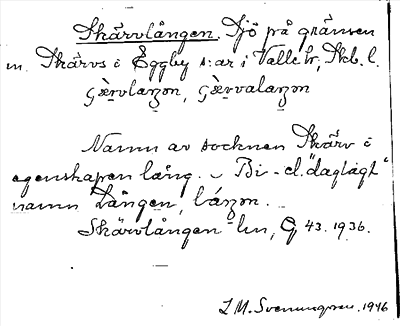 Skärvlången. Sjö på gränsen
m. Skärvs o Eggby s:ar i Valle hr, Skb. l.
Namn av socknen Skärv o
egenskapen lång. Bi- el. "dagligt"
namn Lången, láŋən.
Skärvlången -lm, G 43. 1936.
L M. Svenungsson. 1946